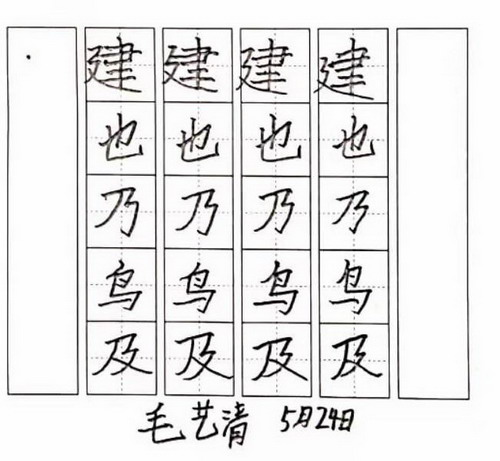 建 建 建 建
也 也 也 也
乃 乃 乃 乃
鸟 鸟 鸟 鸟
及 及 及 及
毛艺清 5月24日